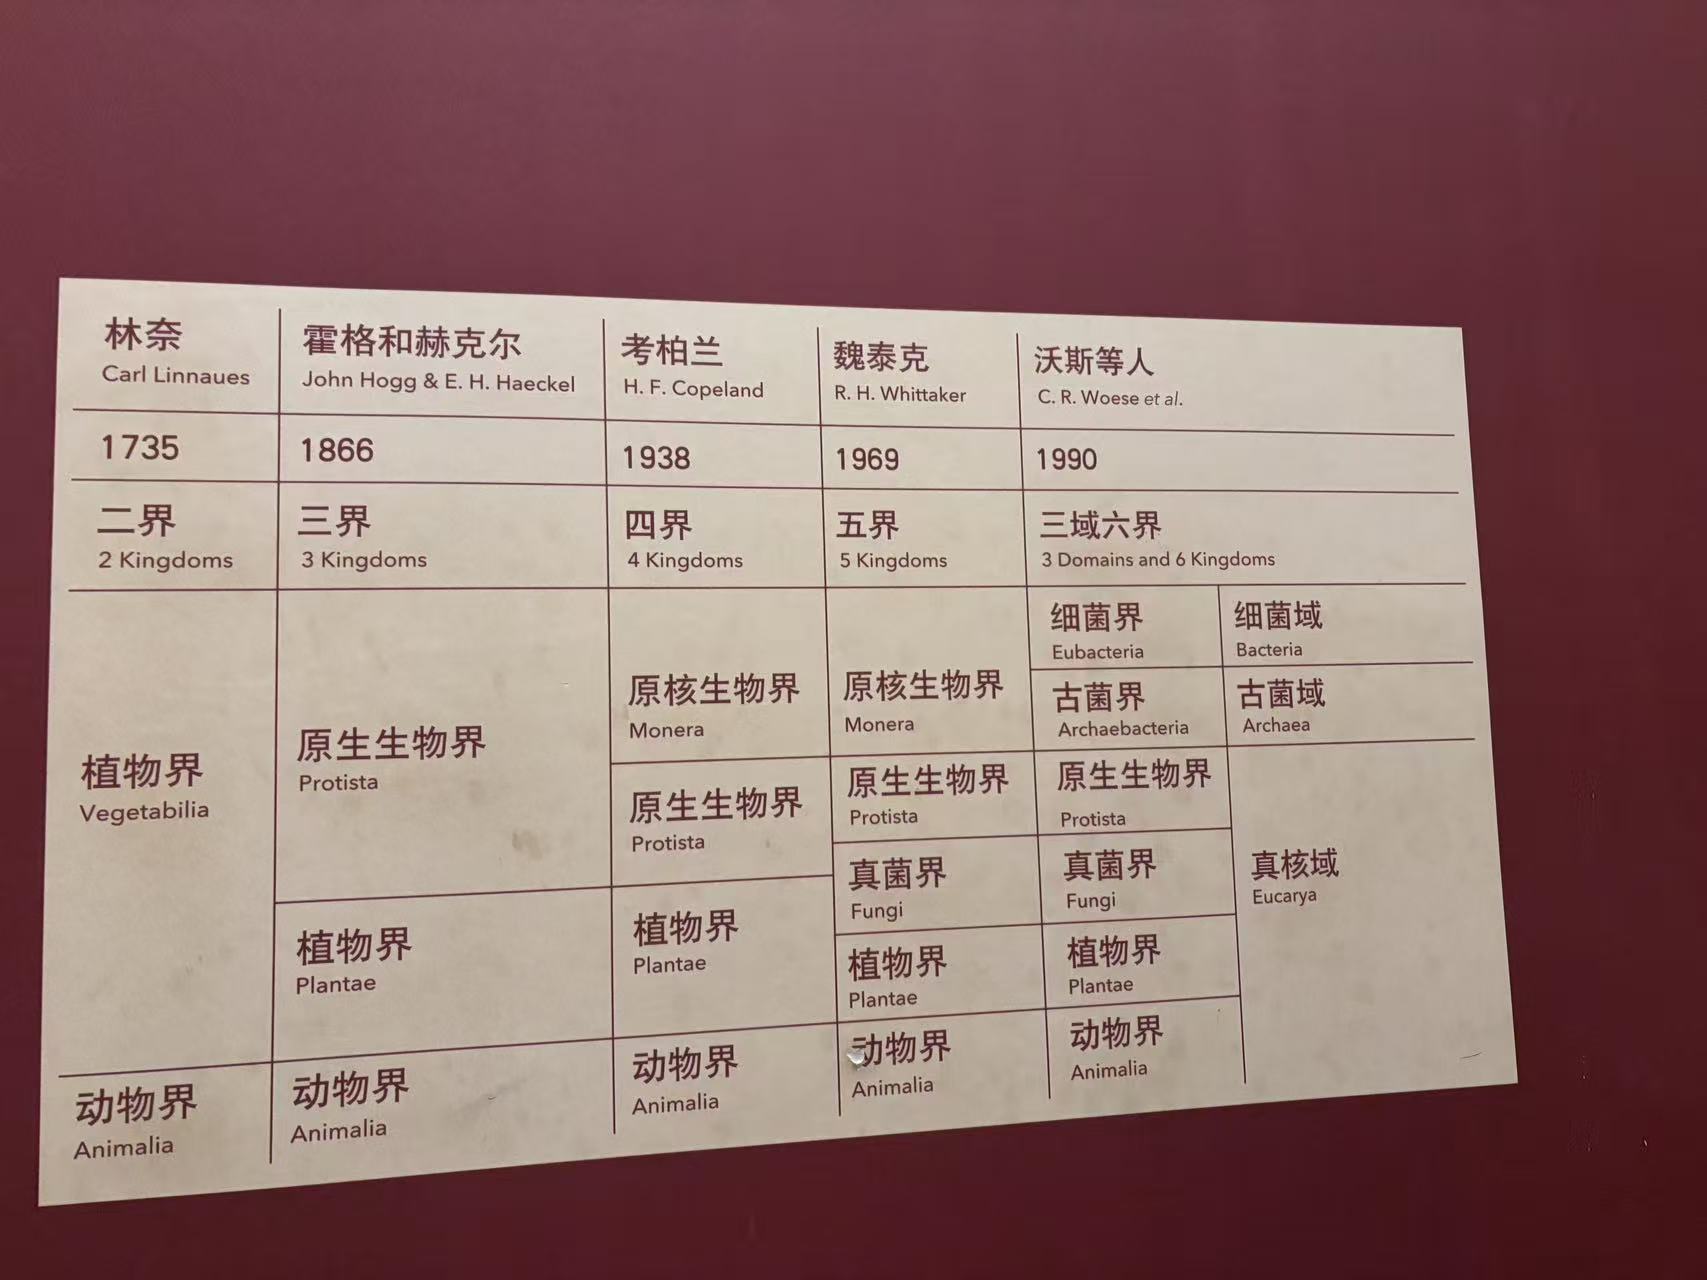 林奈
Carl Linnaues
霍格和赫克尔
John Hogg & E. H. Haeckel
考柏兰
H. F. Copeland
魏泰克
R. H. Whittaker
沃斯等人
C. R. Woese et al.
1735
1866
1938
1969
1990
二界
2 Kingdoms
三界
3 Kingdoms
四界
4 Kingdoms
五界
5 Kingdoms
三域六界
3 Domains and 6 Kingdoms
植物界
Vegetabilia
动物界
Animalia
原生生物界
Protista
植物界
Plantae
动物界
Animalia
原核生物界
Monera
原生生物界
Protista
植物界
Plantae
动物界
Animalia
原核生物界
Monera
原生生物界
Protista
真菌界
Fungi
植物界
Plantae
动物界
Animalia
细菌界
Eubacteria
古菌界
Archaebacteria
原生生物界
Protista
真菌界
Fungi
植物界
Plantae
动物界
Animalia
细菌域
Bacteria
古菌域
Archaea
真核域
Eucarya